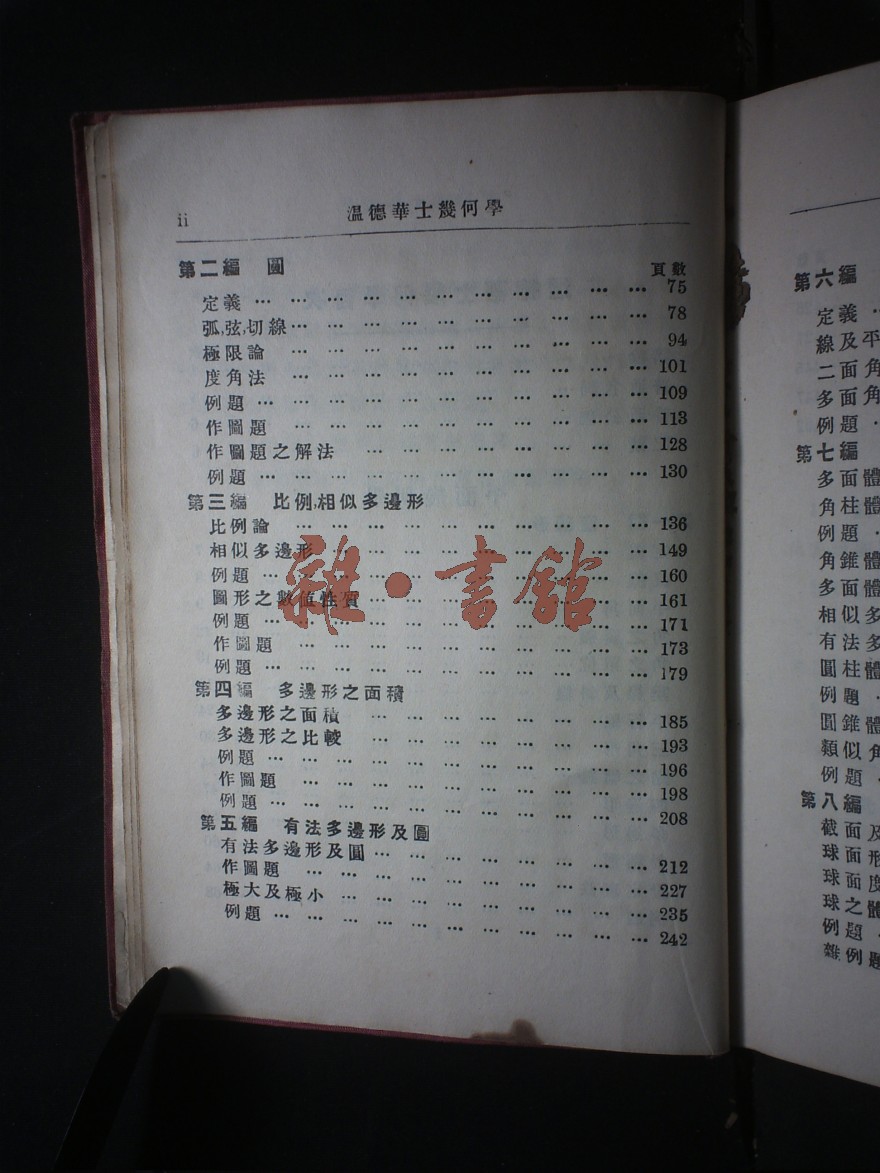 ii 溫德華士幾何學
第二編 圓 頁數
定義 … … … … … … … … … … … … 75
弧,弦,切線… … … … … … … … … … … 78
極限論 … … … … … … … … … … … 94
度角法 … … … … … … … … … … … 101
例題 … … … … … … … … … … … … 109
作圖題 … … … … … … … … … … … 113
作圖題之解法 … … … … … … … … … 128
例題 … … … … … … … … … … … … 130
第三編 比例,相似多邊形
比例論 … … … … … … … … … … … 136
相似多邊形 … … … … … … … … … … 149
例題 … … … … … … … … … … … … 160
圖形之數值性質 … … … … … … … … … 161
例題 … … … … … … … … … … … … 171
作圖題 … … … … … … … … … … … 173
例題 … … … … … … … … … … … … 179
第四編 多邊形之面積
多邊形之面積 … … … … … … … … … 185
多邊形之比較 … … … … … … … … … 193
例題 … … … … … … … … … … … … 196
作圖題 … … … … … … … … … … … 198
例題 … … … … … … … … … … … … 208
第五編 有法多邊形及圓
有法多邊形及圓 … … … … … … … … … 212
作圖題 … … … … … … … … … … … 227
極大及極小 … … … … … … … … … … 235
例題 … … … … … … … … … … … … 242
雜·書館
第六編
定義 …
線及平
二面角
多面角
例題 …
第七編
多面體
角柱體
例題 …
角錐體
多面體
相似多
有法多
圓柱體
例題 …
圓錐體
類似角
例題 …
第八編
截面及
球面形
球面度
球之體
例題 …
雜例題